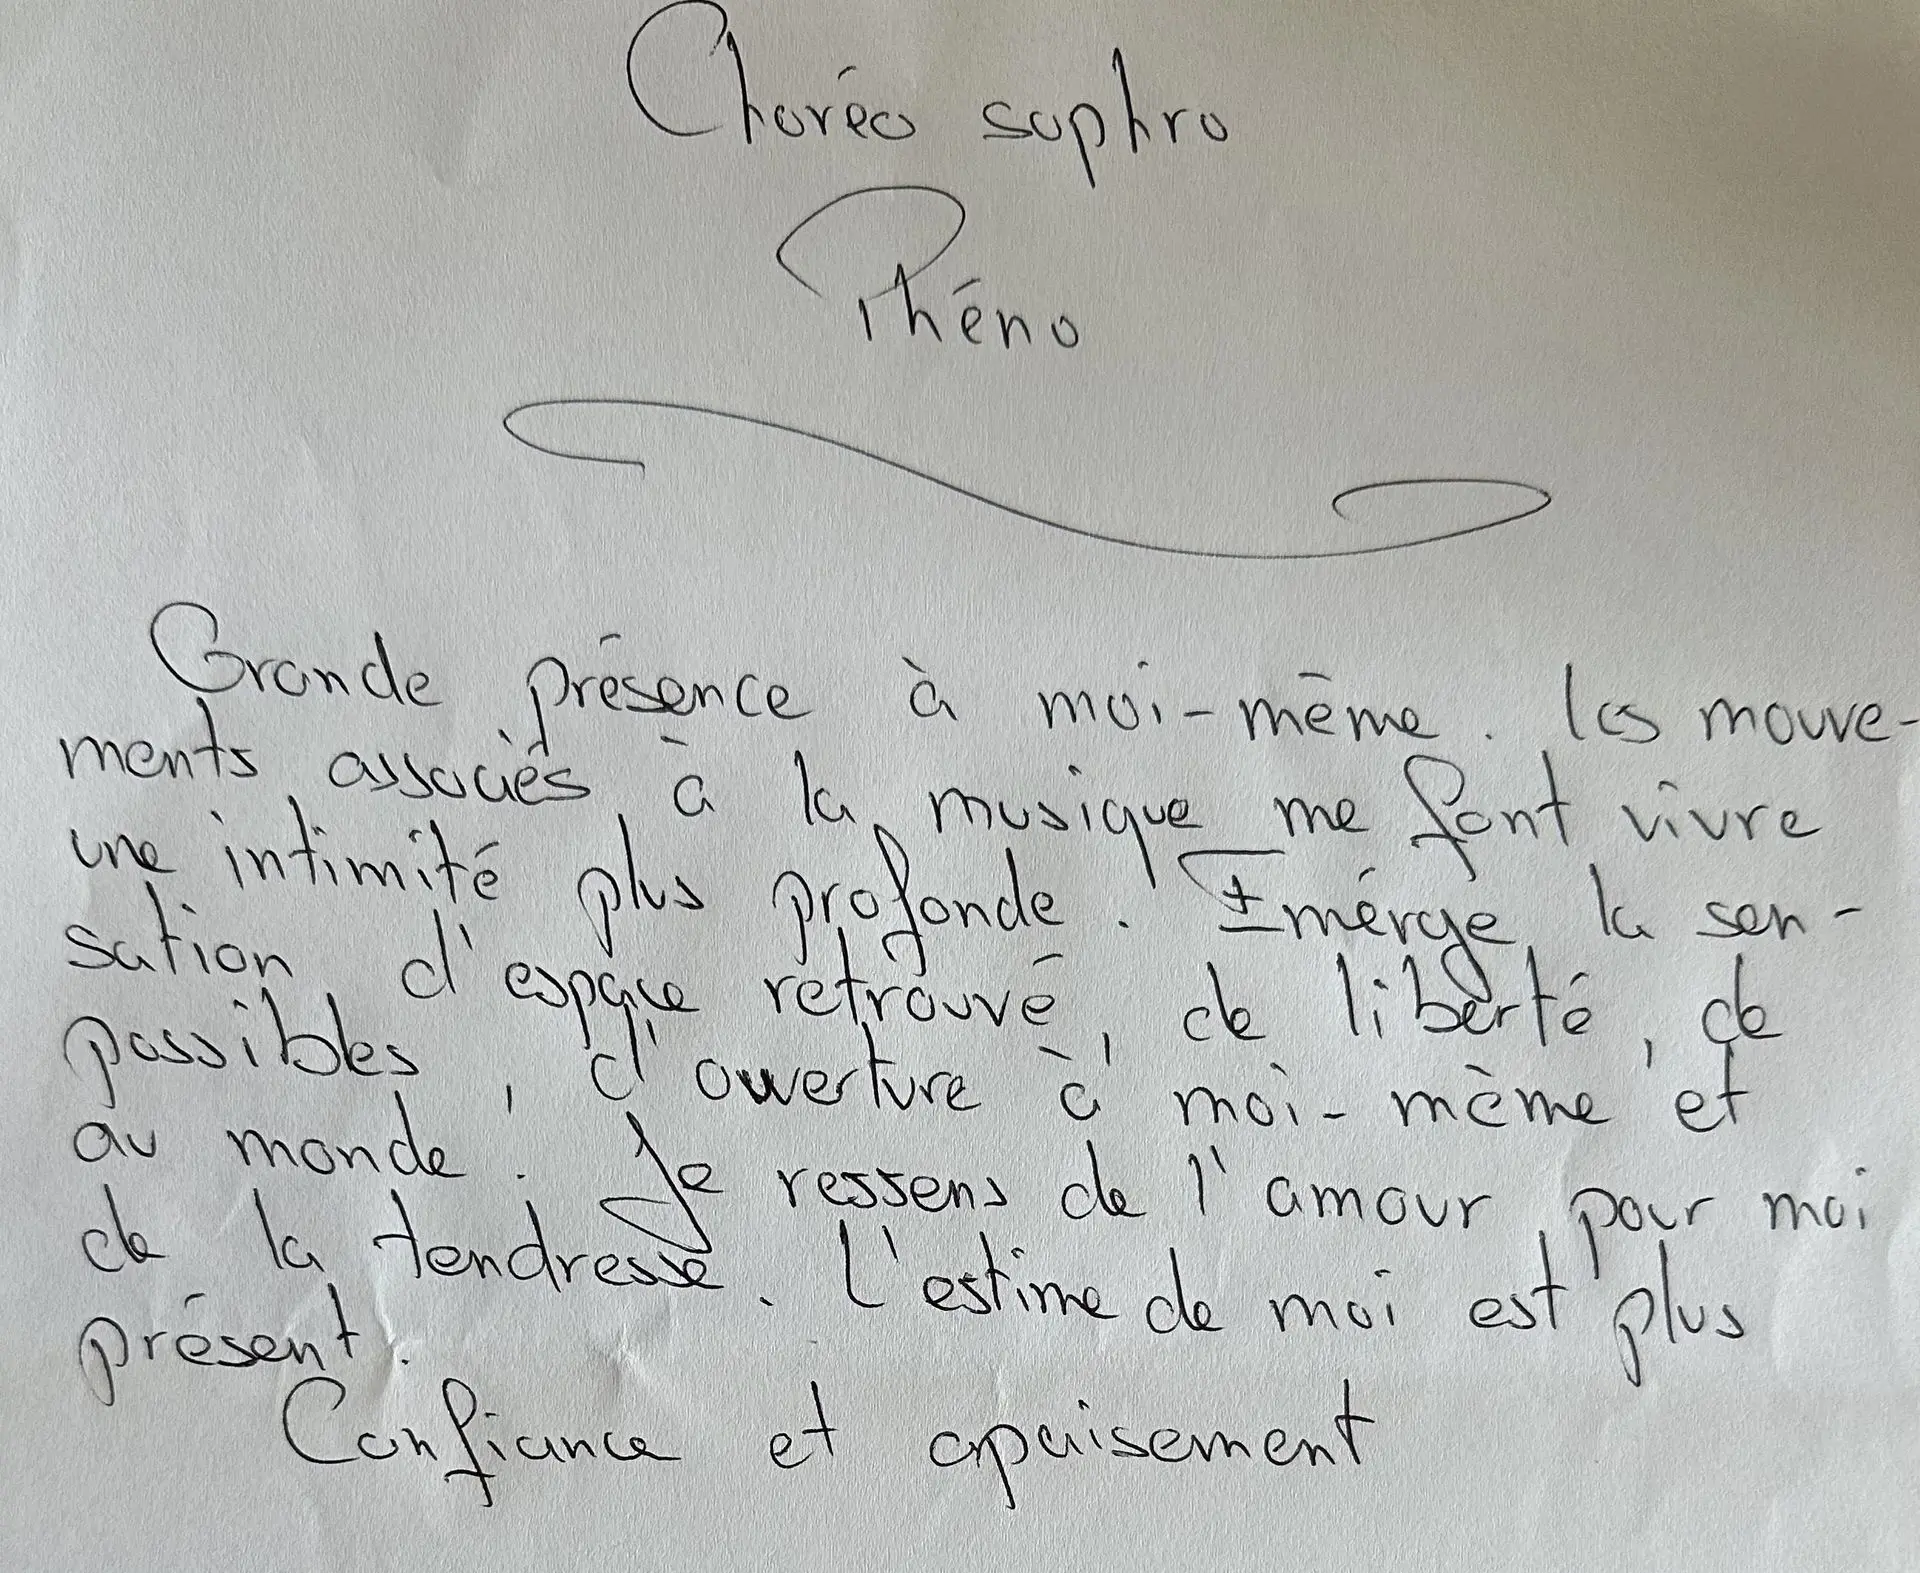 Choréo sophro
Phéno
Grande présence à moi-même. les mouve-
ments associés à la musique me font vivre
une intimité plus profonde. Emérge la sen-
sation d'espace retrouvé, de liberté, de
possibles, d'ouverture à moi-même et
au monde. Je ressens de l'amour pour moi
de la tendresse. L'estime de moi est plus
présent.
Confiance et apaisement